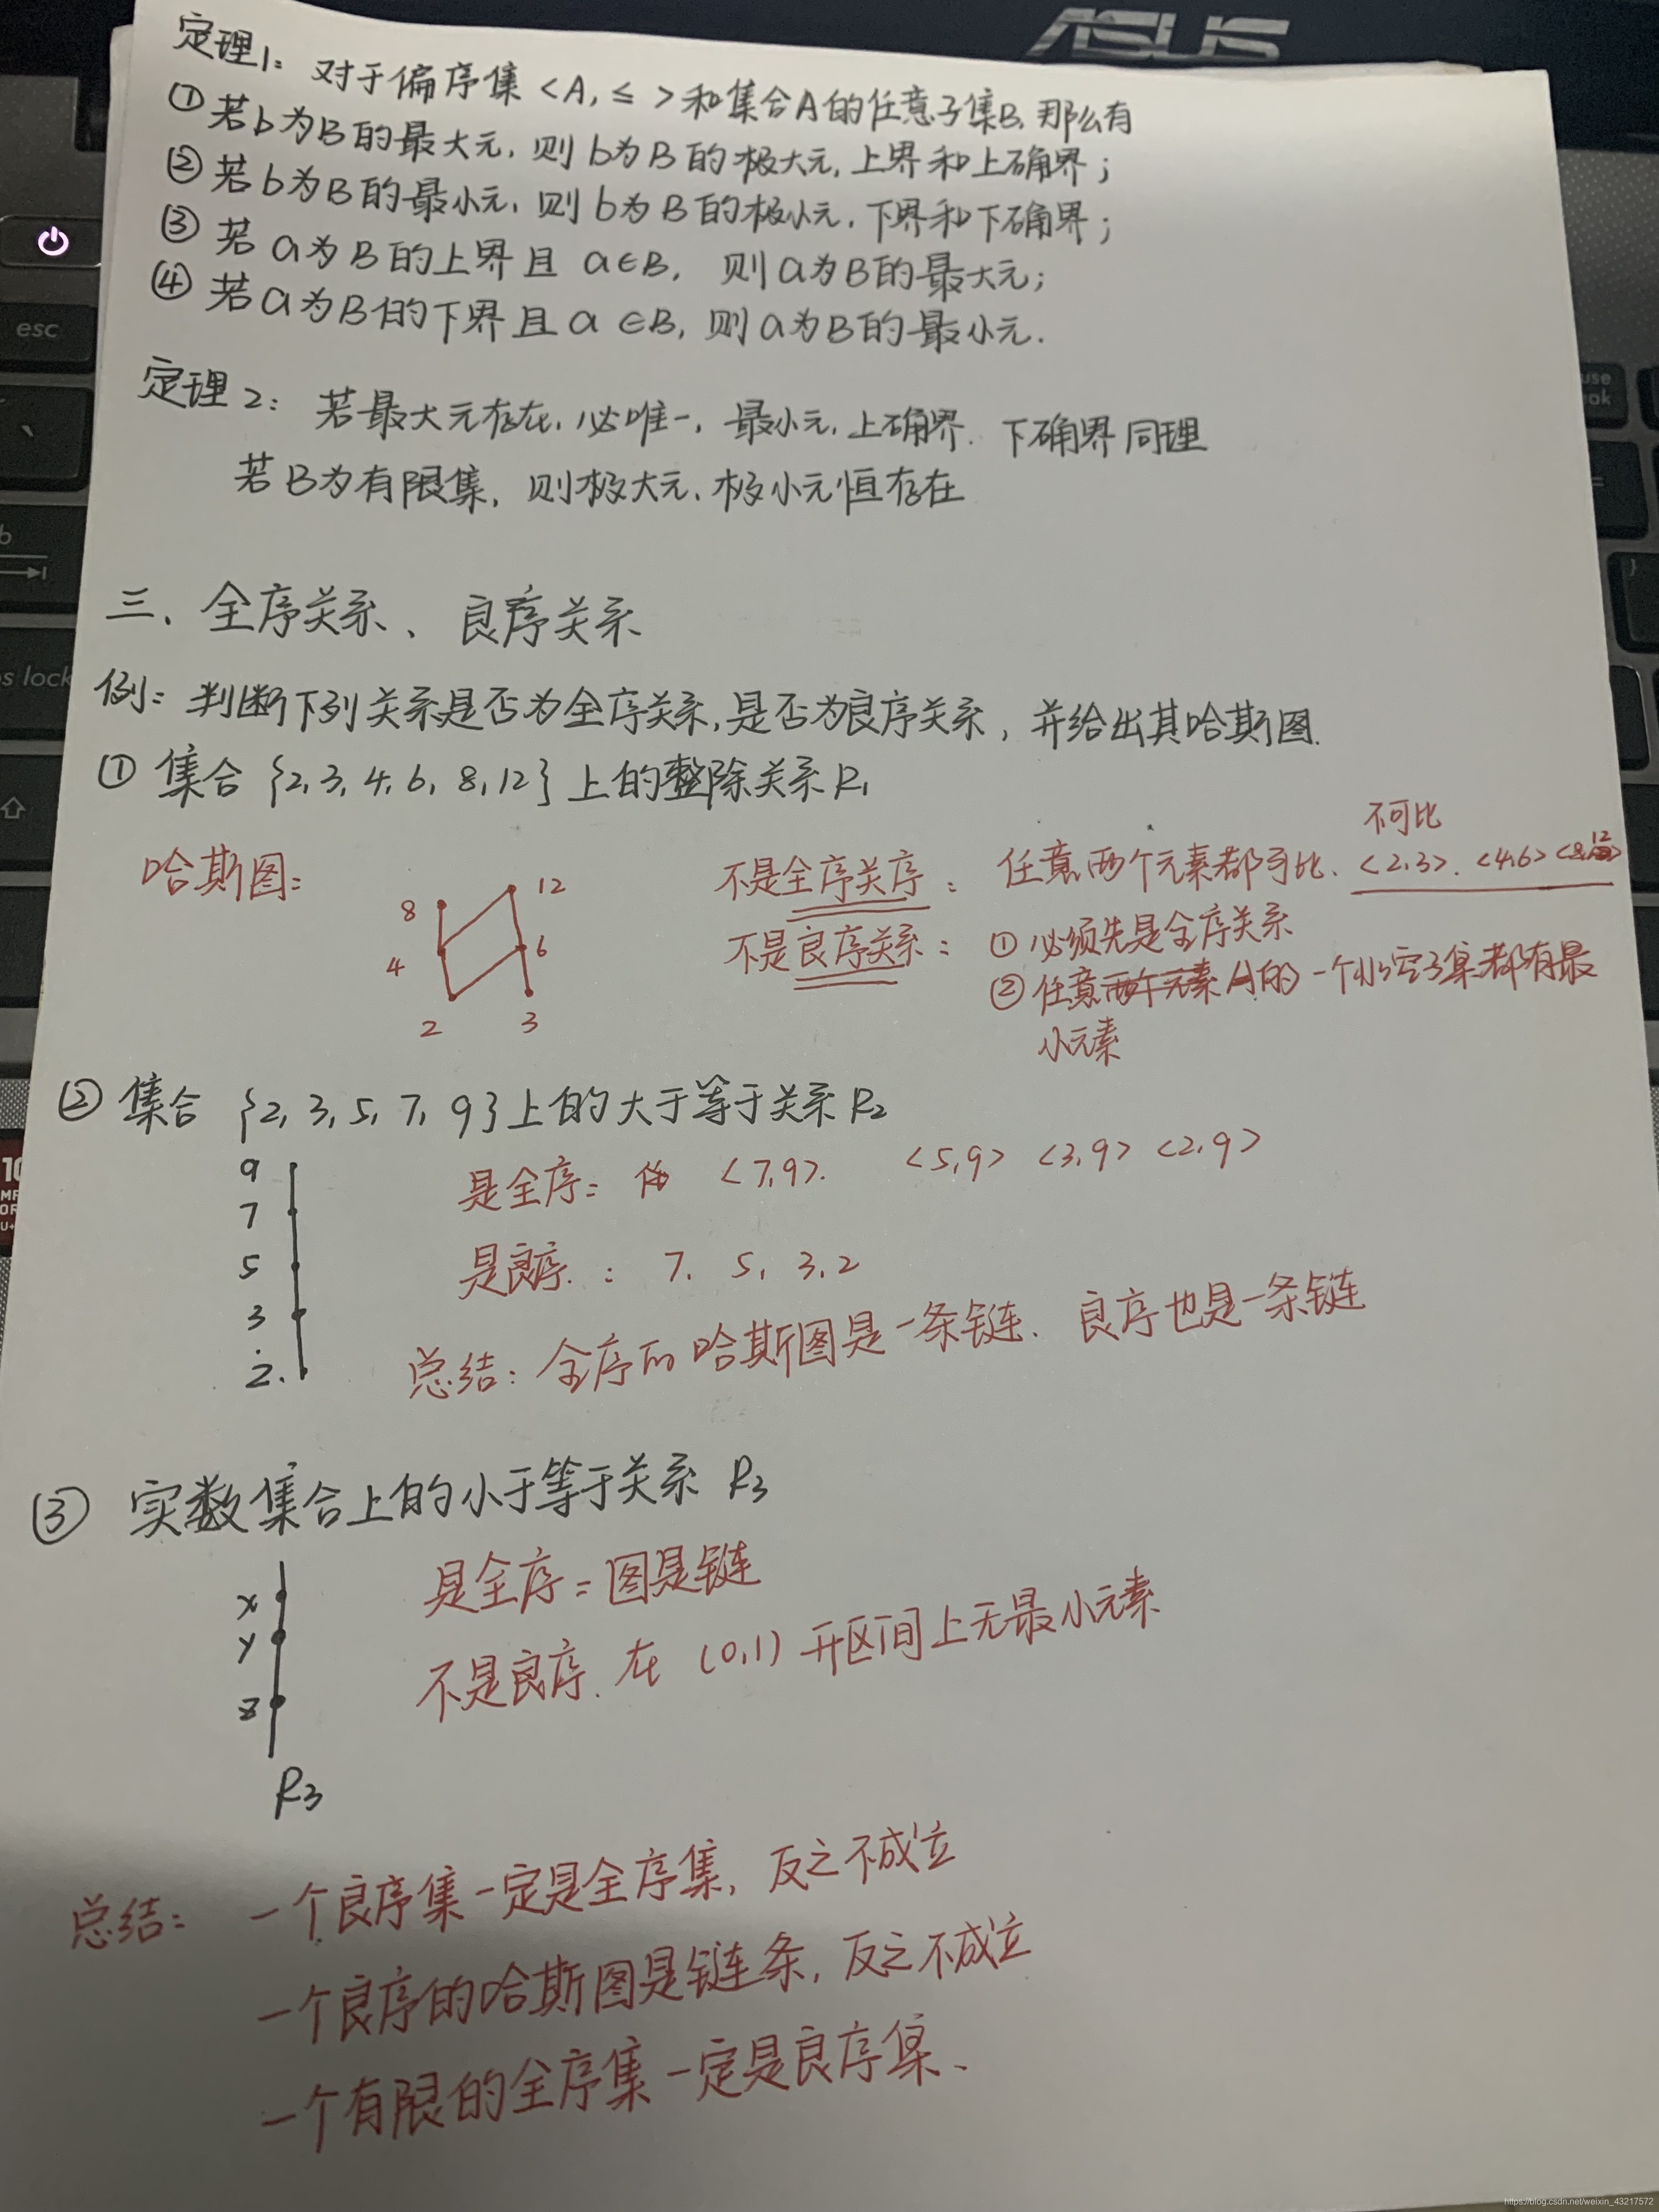 ASUS
定理1: 对于偏序集 <A, ≤ > 和集合A的任意子集B, 那么有
① 若b为B的最大元, 则b为B的极大元, 上界和上确界;
② 若b为B的最小元, 则b为B的极小元, 下界和下确界;
③ 若a为B的上界且 a∈B, 则a为B的最大元;
④ 若a为B的下界且a∈B, 则a为B的最小元.
定理2: 若最大元存在, 必唯一, 最小元, 上确界. 下确界同理
若B为有限集, 则极大元、极小元恒存在
三、全序关系、良序关系
例: 判断下列关系是否为全序关系, 是否为良序关系, 并给出其哈斯图.
① 集合 {2, 3, 4, 6, 8, 12} 上的整除关系R₁
不可比
哈斯图:
不是全序关序: 任意两个元素都可比. <2,3>. <4,6> <8,12>
8 12
4 6
2 3
不是良序关系: ① 必须先是全序关系
② 任意两个元素A的一个非空子集都有最
小元素
② 集合 {2, 3, 5, 7, 9}上的大于等于关系R₂
9
7
5
3
2.
是全序: <7,9>. <5,9> <3,9> <2,9>
是良序. : 7, 5, 3, 2
总结: 全序的哈斯图是一条链. 良序也是一条链
③ 实数集合上的小于等于关系 R₃
x
y
z
R₃
是全序: 图是链
不是良序. 在 (0,1) 开区间上无最小元素
总结: 一个良序集一定是全序集, 反之不成立
一个良序的哈斯图是链条, 反之不成立
一个有限的全序集一定是良序集、
esc
s lock
https://blog.csdn.net/weixin_43217572